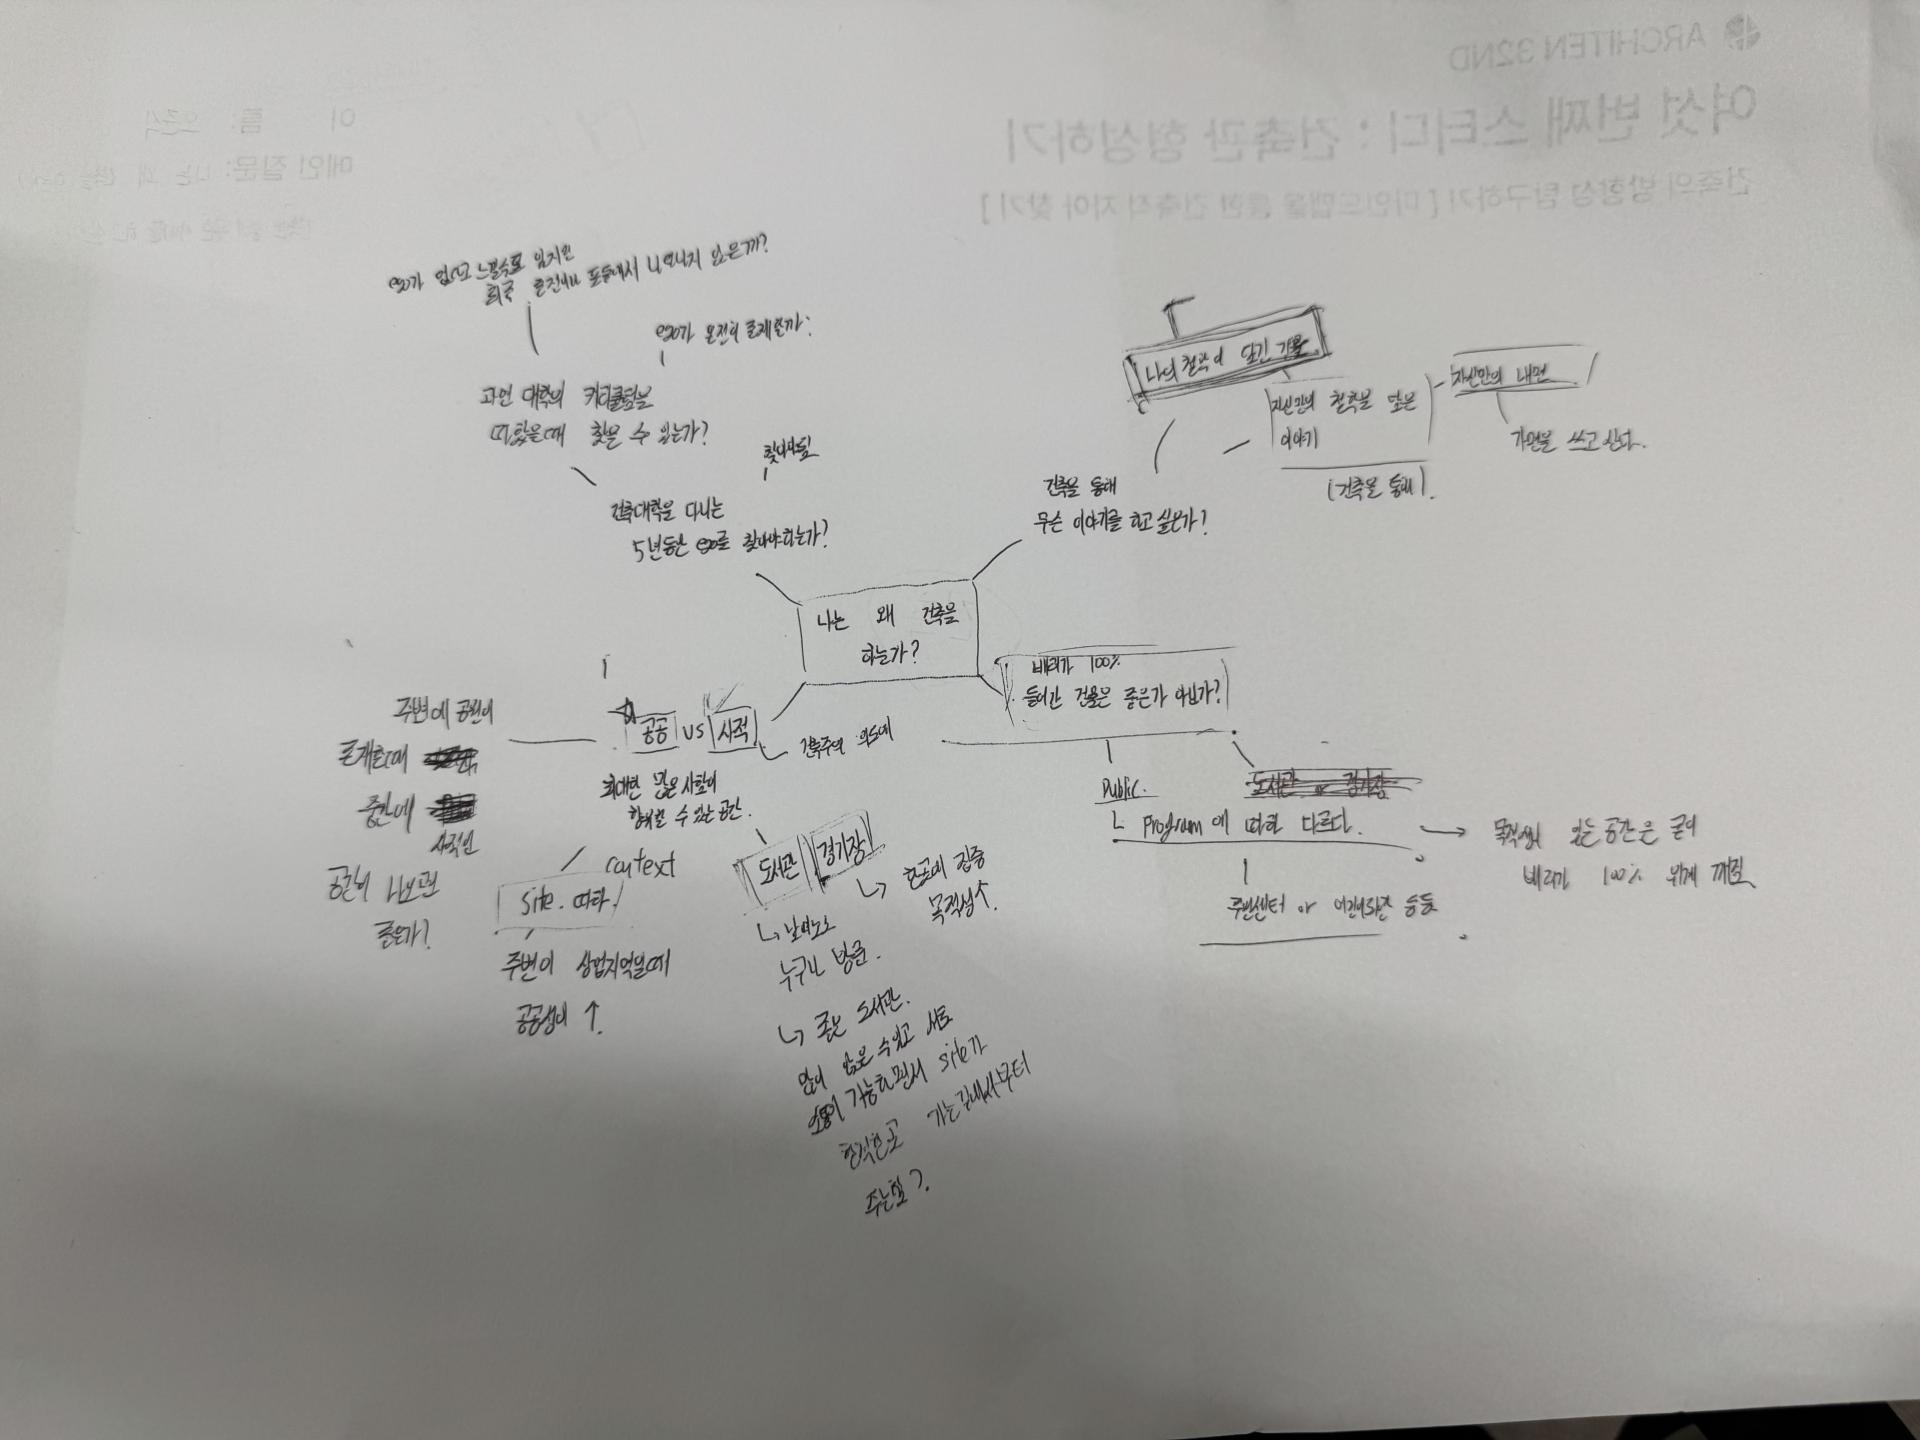 ARCHITEN 32ND
여섯 번째 스터디 : 건축관 형성하기
건축의 방향성 탐구하기 [ 마인드맵을 통한 건축적 자아 찾기 ]
이 름:
메인 질문: 나는 왜
ego가 없다고 느낄수도 있지만
결국 나타나지 않은가?
ego가 온전히 존재할까?
과연 대학의 커리큘럼을
따랐을때 찾을 수 있는가?
찾아야됨
건축대학을 다니는
5년동안 ego를 찾아야하는가?
나의 철학이 담긴 건물
자신만의 철학을 담은
이야기
(건축을 통해).
자신만의 내면
가면을 쓰고 산다.
건축을 통해
무슨 이야기를 하고 싶은가?
나는 왜 건축을
하는가?
배려가 100%
들어간 건물은 좋은가 아닌가?
공공 VS 사적
건축주의 의도에
최대한 많은 사람이
향유할 수 있는 공간.
주변에 공원이
존재할때
중간에
사적인
공간이
좋은가?
context
site. 따라.
주변이 상업지역일때
공공성이 ↑
도서관 경기장
한곳에 집중
목적성↑.
↳ 남녀노소
누구나 방문.
↳ 좋은 도서관.
많이 앉을 수 있고 서로
소통이 가능하면서 site가
한적한곳 가는길에서부터
주는힐?
Public.
↳ Program에 따라 다르다.
주민센터 or 어린이회관 등등
도서관 or 경기장
→ 목적성이 있는 공간은 굳이
배려가 100%